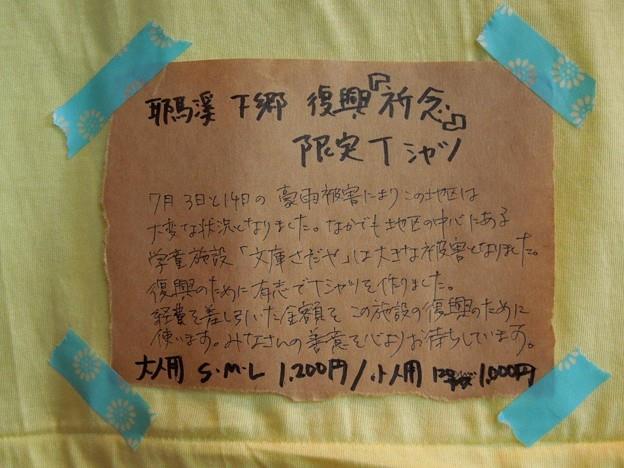 耶馬溪 下郷 復興『祈念』
限定Tシャツ
7月3日と14日の豪雨被害によりこの地区は
大変な状況となりました。なかでも地区の中心にある
学童施設「文庫さだや」は大きな被害となりました。
復興のために有志でTシャツを作りました。
経費を差し引いた金額をこの施設の復興のために
使います。みなさんの善意を心よりお待ちしています。
大人用 S・M・L 1,200円/小人用 1,000円